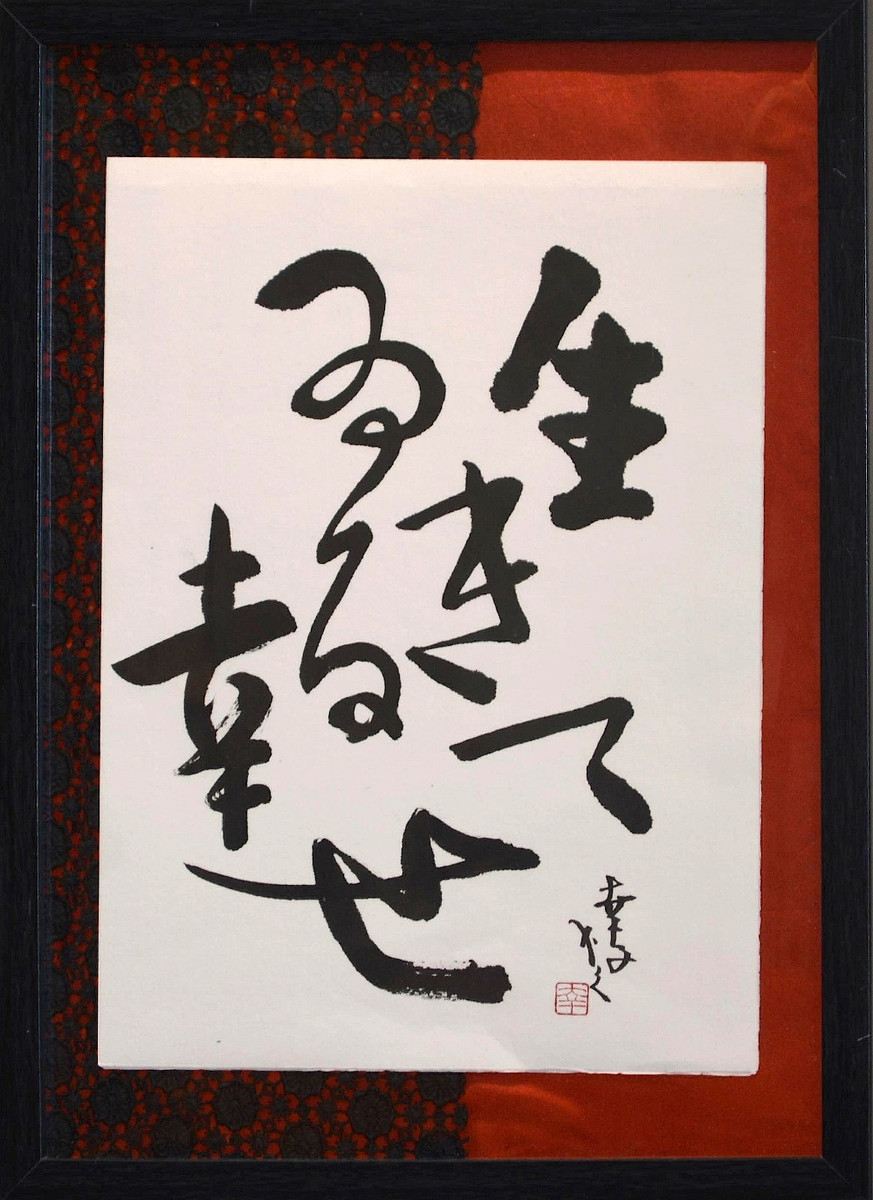 生きて
ゐる
幸せ
幸